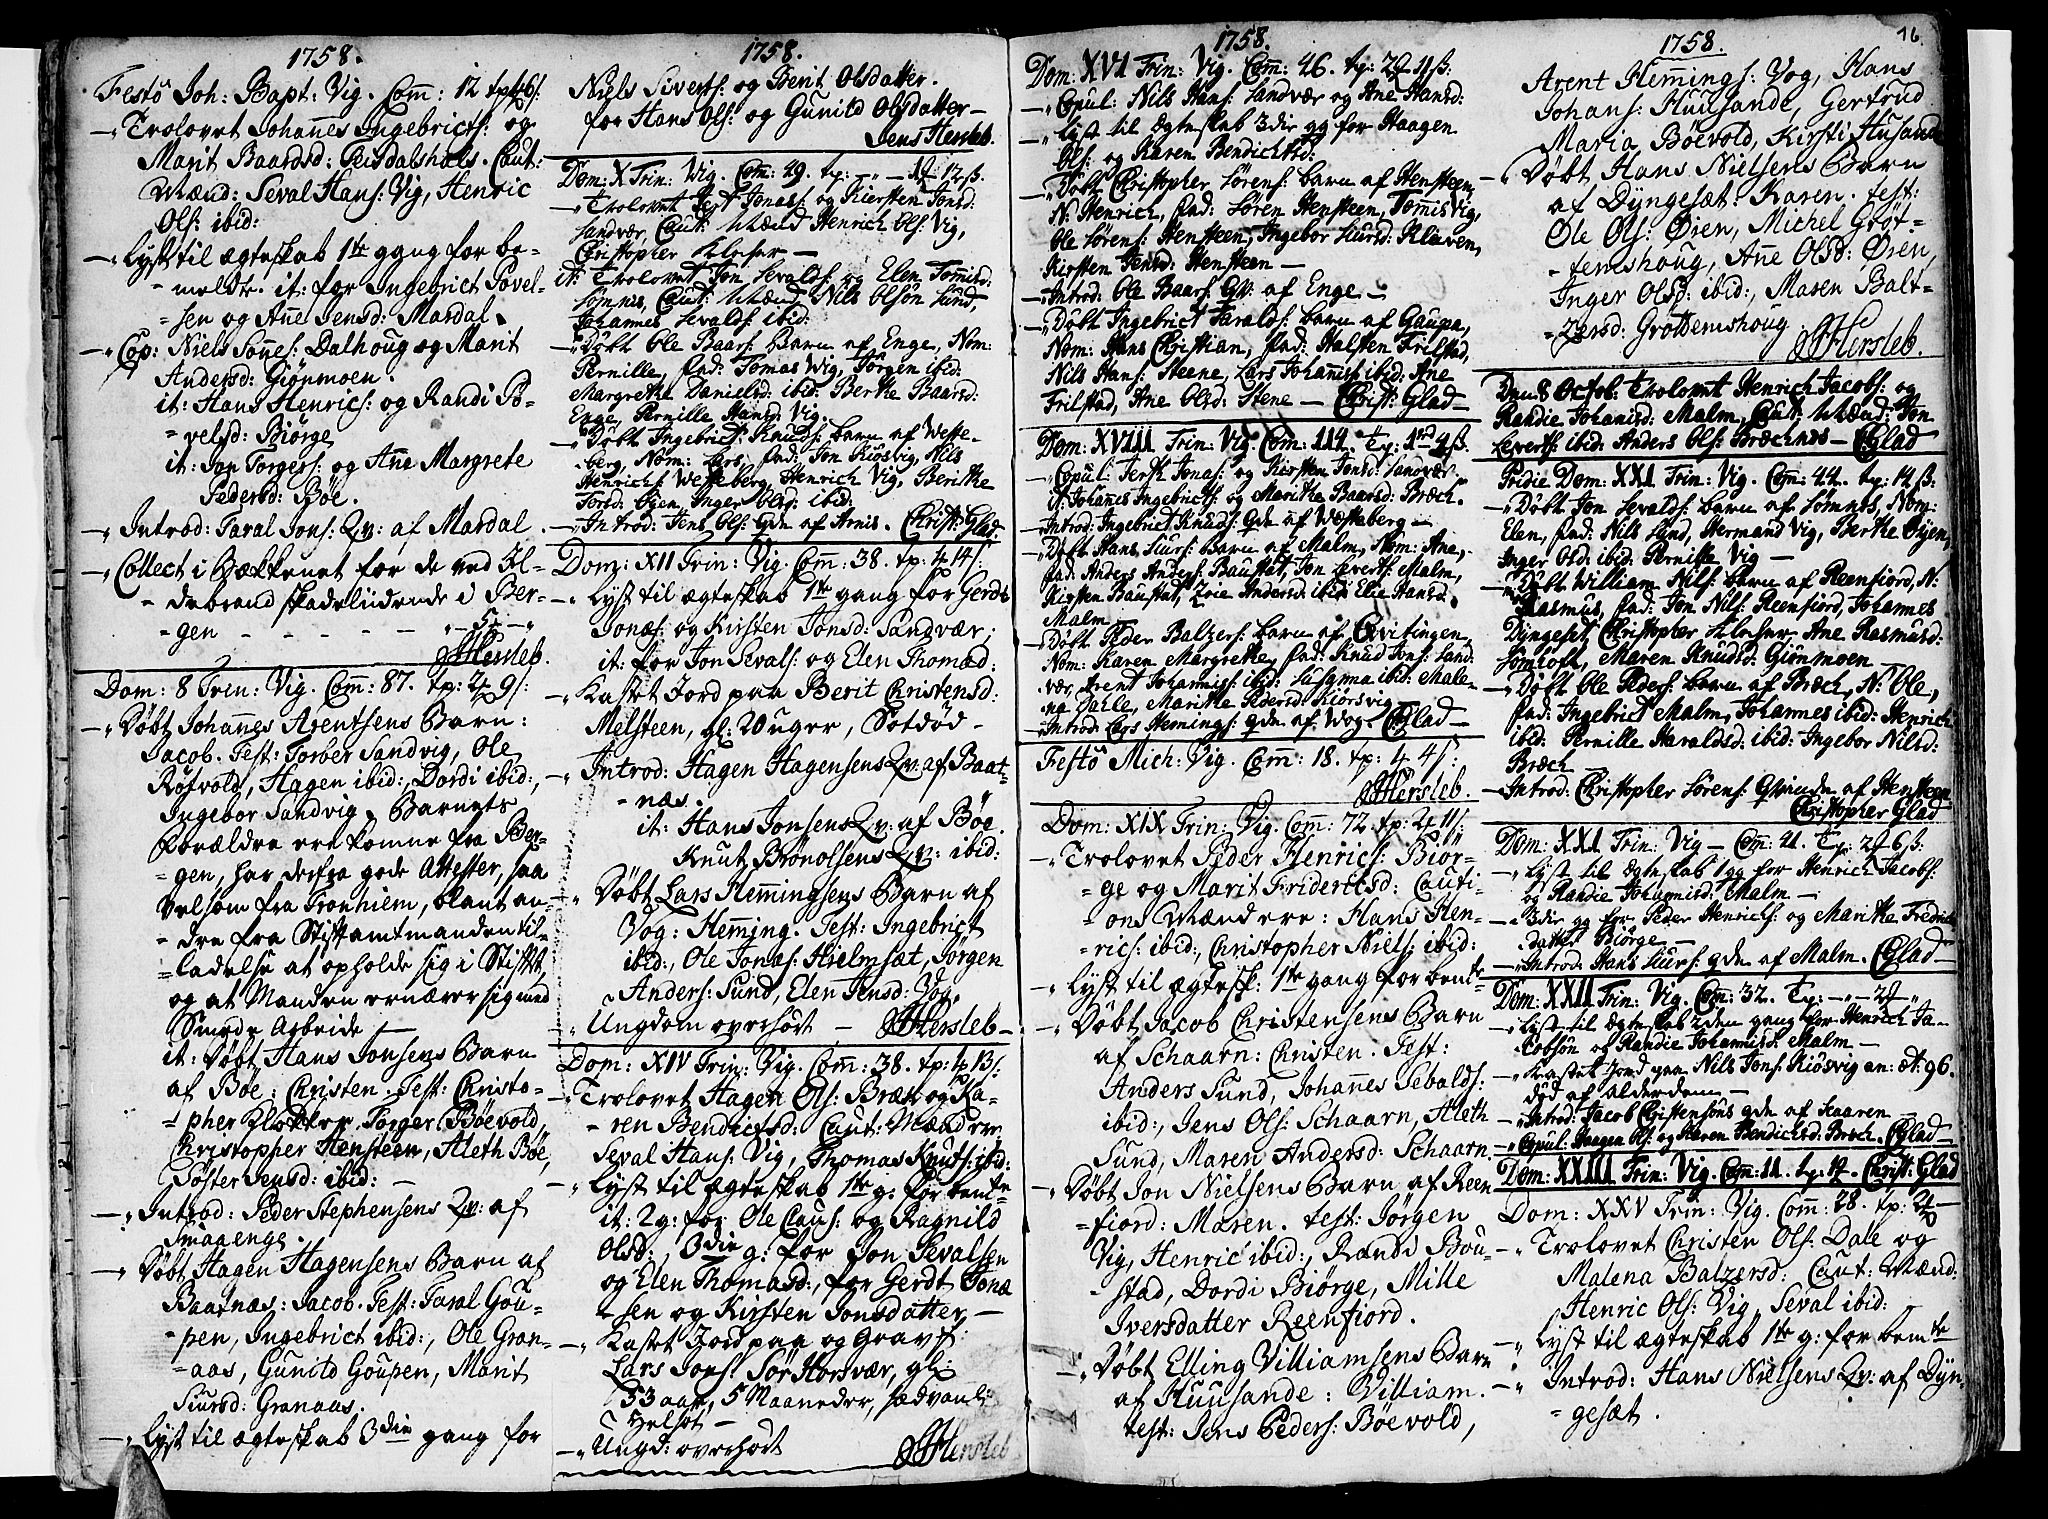 1758.
Festô Joh: Bapt: Vig. Com̄: 12
–„ Trolovet Johannes Ingebricts: og
Marit Baardsd: Geisdalshals. Caut:
Mænd: Seval Hans: Vig, Henric
Ols: ibid:
–„ Lyst til ægteskab 1te gang for be-
-meldte. it: for Ingebrict Povel-
-sen og Ane Jensd: Mardal.
–„ Cop: Niels Dalhoug og Marit
Andersd: Giönmoen.
it: Hans Henrics: og Randi Po-
-velsd: Biörge
it: Jon Torgers: og Ane Margrete
Pedersd: Böe.
–„ Introd: Taral Jons: Qv: af Mardal.
–„ Collect i Bækkenet for de ved Il-
-debrand skadeliidende i Ber-
-gen - - - - -
JHersleb.
Dom: 8 Trin: Vig. Com̄: 87. tp: 2 9/:
–„ Döbt Johannes Arentsens Barn:
Jacob. Test: Torber Sandvig, Ole
Rötvold, Hagen ibid:, Dordi ibid:,
Ingebor Sandvig, Barnets
Forældre ere komne fra Ber-
-gen, har derfra gode Attester, saa
velsom fra Tronhiem, blant an-
-dre fra Stiftamtmanden til-
-ladelse at opholde sig i Stiftet,
og at Manden ernærer sig med
Smede Arbeide –
it: Döbt Hans Jonsens Barn
af Böe: Christen. Test: Christo-
-pher Klokker, Torger Böevold,
Christopher Hensteen, Aleth Böe,
Söster Jensd: ibid: –
–„ Introd: Peder Stephensens Qv: af
Smaaenge.
–„ Döbt Hagen Hagensens Barn af
Baatnæs: Jacob. Test: Taral Gou-
-pen, Ingebrict ibid:, Ole Gran-
-aas, Gunild Goupen, Marit
Siursd: Granaas.
–„ Lyst til ægteskab 3die gang for
1758.
Niels Siverts: og Berit Olsdatter.
for Hans Ols: og Gunild Olsdatter –
Jens Hersleb.
Dom: X Trin: Vig. Com̄: 49. tp: „ – 12ß.
– Trolovet Jert Jonas: og Kiersten Jonsd:
Sandvær, Caut: Mænd Henrich Ols: Vig,
Christopher Klocker –
it: Trolovet Jon Sevalds: og Elen Tomisd:
Sömnes, Caut: Mænd, Nils Olsön Sund,
Johannes Sevalds: ibid:
– Döbt Ole Baars: Barn af Enge, Nom:
Pernille, fad: Tomas Vig, Jörgen ibid:
Margrethe Danielsd: ibid: Berthe Baarsd:
Enge, Pernille Hansd: Vig.
– Döbt Ingebrict Knuds: barn af Weste-
berg, Nom: Lars, fad: Jon Kiösvig, Nils
Henrichs: Westeberg, Henrich Vig, Berithe
Tor:d: Öyen, Inger Olsd: ibid:
– Introd: Jens Ols: qde af Arnis. Christ: Glad.
Dom: XII Trin: Vig. Com̄: 38. tp: 4 14/:
–„ Lyst til ægteskab 1te gang for Gerdt
Jonæs: og Kirsten Jonsd: Sandvær;
it: for Jon Sevals: og Elen Thomæd:
–„ Kastet Jord paa Berit Christensd:
Melsteen, gl: 20 uger, Sotdöd –
–„ Introd: Hagen Hagensens Qv: af Baat-
-næs.
it: Hans Jonsens Qv: af Böe.
Knut Brönolsens Qv: ibid:
–„ Döbt Lars Hemingsens Barn af
Vog: Heming. Test: Ingebrict
ibid:, Ole Jonas: Hielmsæt, Jörgen
Anders: Sund, Elen Jensd: Vog.
–„ Ungdom overhört – JHersleb –
Dom: XIV Trin: Vig. Com̄: 38. tp: 4 13/:
–„ Trolovet Hagen Ols: Bræk og Ka-
-ren Bendictsd: Caut: Mændene
Seval Hans: Vig, Thomas Knuts: ibid:
–„ Lyst til ægteskab 1te g: for bemte
it: 2 g: for Ole Claus: og Ragnild
Olsd:, 3die g: for Jon Sevalsen
og Elen Thomasd:, for Gerdt Jonæ
-sen og Kirsten Jonsdatter –
–„ Kastet Jord paa og Gravf:
Lars Jons: Sör Horsvær, gl:
53 aar, 5 Maaneder, sædvanl:
Helsot –
–„ Ungd: overhört JHersleb
1758. 16
Dom: XVI Trin: Vig. Com̄: 46. tp: 2 11ß:
–„ Copul: Nils Hans: Sandvær og Ane Hansd:
–„ Lyst til Ægteskab 3die gg for Haagen
Ols: og Karen Bendichtsd:
–„ Döbt Christopher Sörens: barn af Hensteen,
N: Henrich, fad: Sören Hensteen, Tomis Vig,
Ole Sörens: Hensteen, Ingebor Siursd: Kleven,
Kirsten Jensd: Hensteen –
–„ Introd: Ole Baars: Qv: af Enge –
–„ Döbt Ingebrict Taralds: barn af Gaupa,
Nom: Hans Christian, fad: Halsten Frilstad,
Nils Hans: Steene, Lars Johannis: ibid: Ane
Frilstad, Ane Olsd: Stene – Christ: Glad –
Dom: XVIII Trin: Vig. Com: 114. tp: 1rd 4ß
– Copul: Jerth Jonas: og Kirsten Jonsd: Sandvær.
it: Johannes Ingebricts: og Marithe Baarsd: Bræch.
– Introd: Ingebrict Knuds: qde af Westeberg –
– Döbt Hans Siurs: barn af Malm, Nom: Ane,
fad: Anders Anders: Baustat, Jon Everts: Malm,
Kirsten Baustat, Andersd: ibid: Elie Hansd:
Malm –
– Döbt Peder Balzers: barn af Qvitingen,
Nom: Karen Margrethe, fad: Knud Jons: Sand-
vær, Arent Johannis: ibid: Susanna ibid: Male-
na Dahle, Marithe Pedersd: Kiörsvig
– Introd: Lars Hemings: qde af Wog. CGlad –
Festô Mich: Vig. Com̄: 18. tp: 4 4/:
JHersleb.
Dom: XIX Trin: Vig. Com̄: 72. tp: 2 11/:
–„ Trolovet Peder Henrics: Biör-
-ge og Marit Fridericsd: Cauti-
-ons Mændere: Hans Hen-
-rics: ibid:, Christopher Niels: ibid:
–„ Lyst til ægtesk: 1te gang for bemte
–„ Döbt Jacob Christensens Barn
af Schaarn: Christen. Test:
Anders Sund, Johannes Sebalds:
ibid:, Jens Ols: Schaarn, Aleth
Sund, Maren Andersd: Schaarn
–„ Döbt Jon Nielsens Barn af Reen
-fiord: Maren. test: Jörgen
Vig, Henric ibid:, Randi Bou-
-stad, Dordi Biörge, Mille
Iversdatter Reenfiord.
–„ Döbt Elling Villiamsens Barn
af Huusande: Villiam.
test: Jens Peders: Böevold,
1758.
Arent Hemmings: Vog, Hans
Johans: Huusande, Gertrud
Maria Böevold, Kirsti Husand
–„ Döbt Hans Nielsens Barn
af Dyngesæt: Karen. test:
Ole Ols: Ören, Michel Gröt-
-temshoug, Ane Olsd: Ören,
Inger Olsd: ibid:, Maren Balt-
-zersd: Grottemshoug
JHersleb.
Den 8 Octob: trolovet Henrich Jacobs: og
Randie Johanisd: Malm, Caut: Mænd: Jon
Everts: ibid: Anders Ols: Bræchnes – CGlad
Pridie Dom: XXI Trin: Vig. Com̄: 44. tp: 14ß:
– Döbt Jon Sevalds: barn af Sömnes, Nom:
Elen, fad: Nils Sund, Hermand Vig, Berthe Öyen,
Inger Olsd: ibid: Pernille Vig –
– Döbt William Nils: barn af Reenfiord, N:
Rasmus, fad: Jon Nils: Reenfiord, Johannes
Dyngeset, Christopher Klocker, Ane Rasmusd:
Somhoft, Maren Knudsd: Giönmoen –
– Döbt Ole Peders: barn af Bræch, N: Ole,
fad: Ingebrict Malm, Johannes ibid: Henrich
ibid: Pernille Haraldsd: ibid: Ingebor Nilsd:
Bræch –
– Introd: Christopher Sörens: Qvinde af Hensteen
Christopher Glad
Dom: XXI Trin: Vig – Com: 41. Tp: 2 6ß:
– Lyst til Ægteskab 1 gg for Henrich Jacobs:
og Randie Johannisd: Malm –
– 3die gg for Peder Henrichs: og Marithe Fredrichs
datter Biörge –
– Introd: Hans Siurs: qde af Malm. CGlad –
Dom: XXII Trin: Vig. Com: 32. Tp: –„– 2 „
– Lyst til Ægteskab 2den gang for Henrich Ja-
cobsön og Randie Johannisd: Malm –
– Kastet Jord paa Nils Jons: Kiösvig an: æt: 96.
död af Alderdom –
– Introd: Jacob Christensöns qde af Scaaren –
– Copul: Haagen Ols: og Karen Bendichsd: Bræch. CGlad –
Dom: XXIII Trin: Vig. Com: 11. tp: 1. Christ: Glad
Dom: XXV Trin: Vig. Com̄: 28. tp: 2
–„ Trolovet Christen Ols: Dale og
Malena Balzersd: Caut: Mænd:
Henric Ols: Vig, Seval ibid:
–„ Lyst til ægteskab 1te g: for bemte
–„ Introd: Hans Nielsens Qv: af Dyn-
-gesæt.